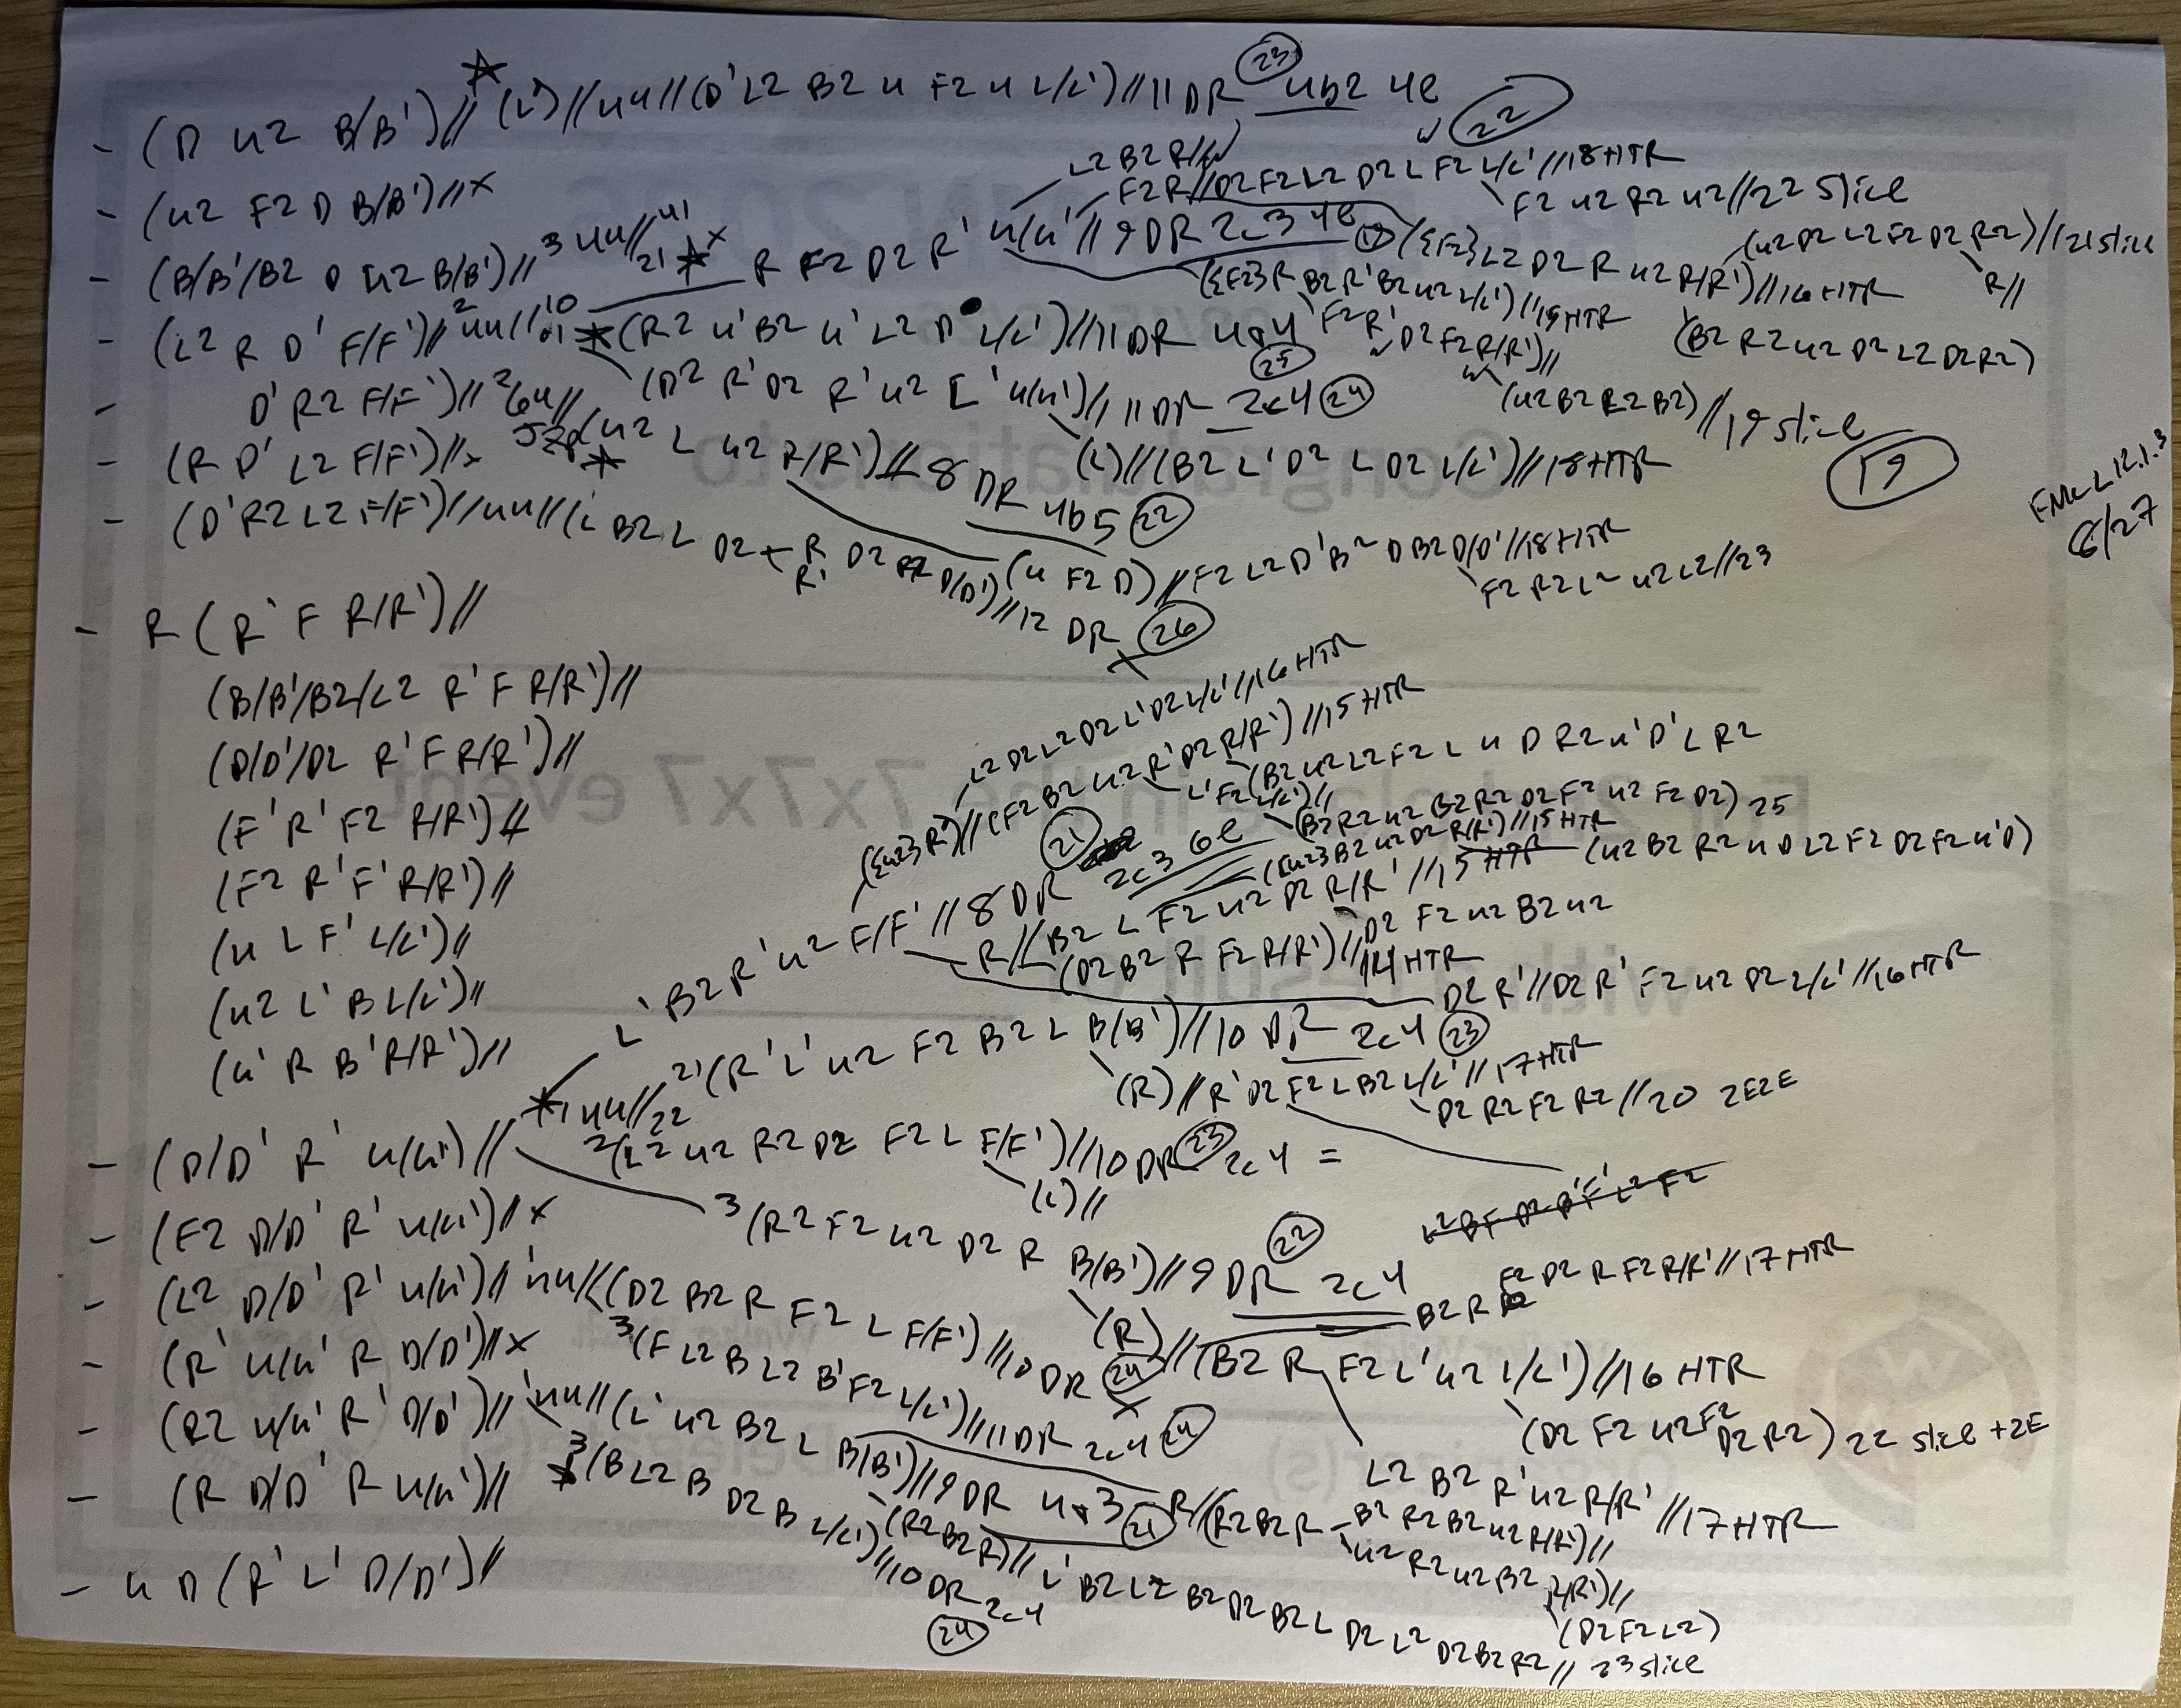 - (D U2 B/B')// (L')//4U//(D' L2 B2 U F2 U L/L')//11 DR 23 4b2 4e
L2 B2 R//
22
- (U2 F2 D B/B')//x
F2 R//D2 F2 L2 D2 L F2 L/L'//18 HTR
F2 U2 R2 U2//22 slice
- (B/B'/B2 D U2 B/B')//3 4U//
21 x R F2 D2 R' U/U'//9 DR 2c3 4e ({F2} L2 D2 R U2 R/R')//16 HTR
(U2 D2 L2 F2 D2 R2)//21 slice
R//
({F2} R B2 R' B2 U2 L/L')//15 HTR
- (L2 R D' F/F')//2 4U//
(R2 U' B2 U' L2 D L/L')//11 DR 4a4 25
F2 R' D2 F2 R/R')//
(B2 R2 U2 D2 L2 D2 R2)
- D' R2 F/F')//2 6U//
(D2 R' D2 R' U2 L' U/U')//11 DR 2c4 24
(U2 B2 R2 B2)//19 slice
19
- (R D' L2 F/F')//x
(U2 L U2 R/R')//8 DR 4b5 22
(L)//(B2 L' D2 L D2 L/L')//18 HTR
FMC L12.1.3
6/27
- (D' R2 L2 F/F')//4U//(L B2 L D2 + R R' D2 R2 D/D')//12 DR 26 x
(U F2 D)//F2 L2 D' B2 D B2 D/D'//18 HTR
F2 R2 L2 U2 L2//23
- R (R' F R/R')//
(B/B'/B2/L2 R' F R/R')//
(D/D'/D2 R' F R/R')//
(F' R' F2 R/R')//
(F2 R' F' R/R')//
(U L F' L/L')//
(U2 L' B L/L')//
(U' R B' R/R')//
L' B2 R' U2 F/F'//8 DR 2c3 6e 21
({U2} R')//(F2 B2 U2 R' D2 R/R')//15 HTR
L2 D2 L2 D2 L' D2 L/L'//16 HTR
L' F2 L/L')//
(B2 U2 L2 F2 L U D R2 U' D' L R2
(B2 R2 U2 B2 R2 D2 F2 U2 F2 D2) 25
({U2} B2 U2 D2 R/R')//15 HTR
R//(B2 L F2 U2 D2 R/R'//15 HTR (U2 B2 R2 U D L2 F2 D2 F2 U' D)
D2 F2 U2 B2 U2
(D2 B2 R F2 R/R')//14 HTR
D2 R'//D2 R' F2 U2 D2 L/L'//16 HTR
- (D/D' R' U/U')//
4U//22
21 (R' L' U2 F2 B2 L B/B')//10 DR 2c4 23
(R)//R' D2 F2 L B2 L/L'//17 HTR
D2 R2 F2 R2//20 2E2E
2(L2 U2 R2 D2 F2 L F/F')//10 DR 23 2c4 =
(L)//
- (F2 D/D' R' U/U')//x
3(R2 F2 U2 D2 R B/B')//9 DR 22 2c4
L2 B F D2 B' F' L2 F2
B2 R F2 D2 R F2 R/R'//17 HTR
- (L2 D/D' R' U/U')//'4U//(D2 B2 R F2 L F/F')//10 DR 24 x
(R)//(B2 R F2 L' U2 L/L')//16 HTR
(D2 F2 U2 F2 D2 R2) 22 slice + 2E
- (R' U/U' R D/D')//x
3(F L2 B L2 B' F2 L/L')//11 DR 2c4 24
L2 B2 R' U2 R/R'//17 HTR
- (R2 U/U' R' D/D')//'4U//(L' U2 B2 L B/B')//9 DR 4a3 21
R//(R2 B2 R - B2 R2 B2 U2 R/R')//
U2 R2 U2 B2 R/R')//
(D2 F2 L2)
- (R D/D' R U/U')//
3(B L2 B D2 B L/L')//10 DR 2c4 24
(R2 B2 R)//L' B2 L2 B2 D2 B2 L D2 L2 D2 B2 R2//23 slice
- U D (R' L' D/D')//